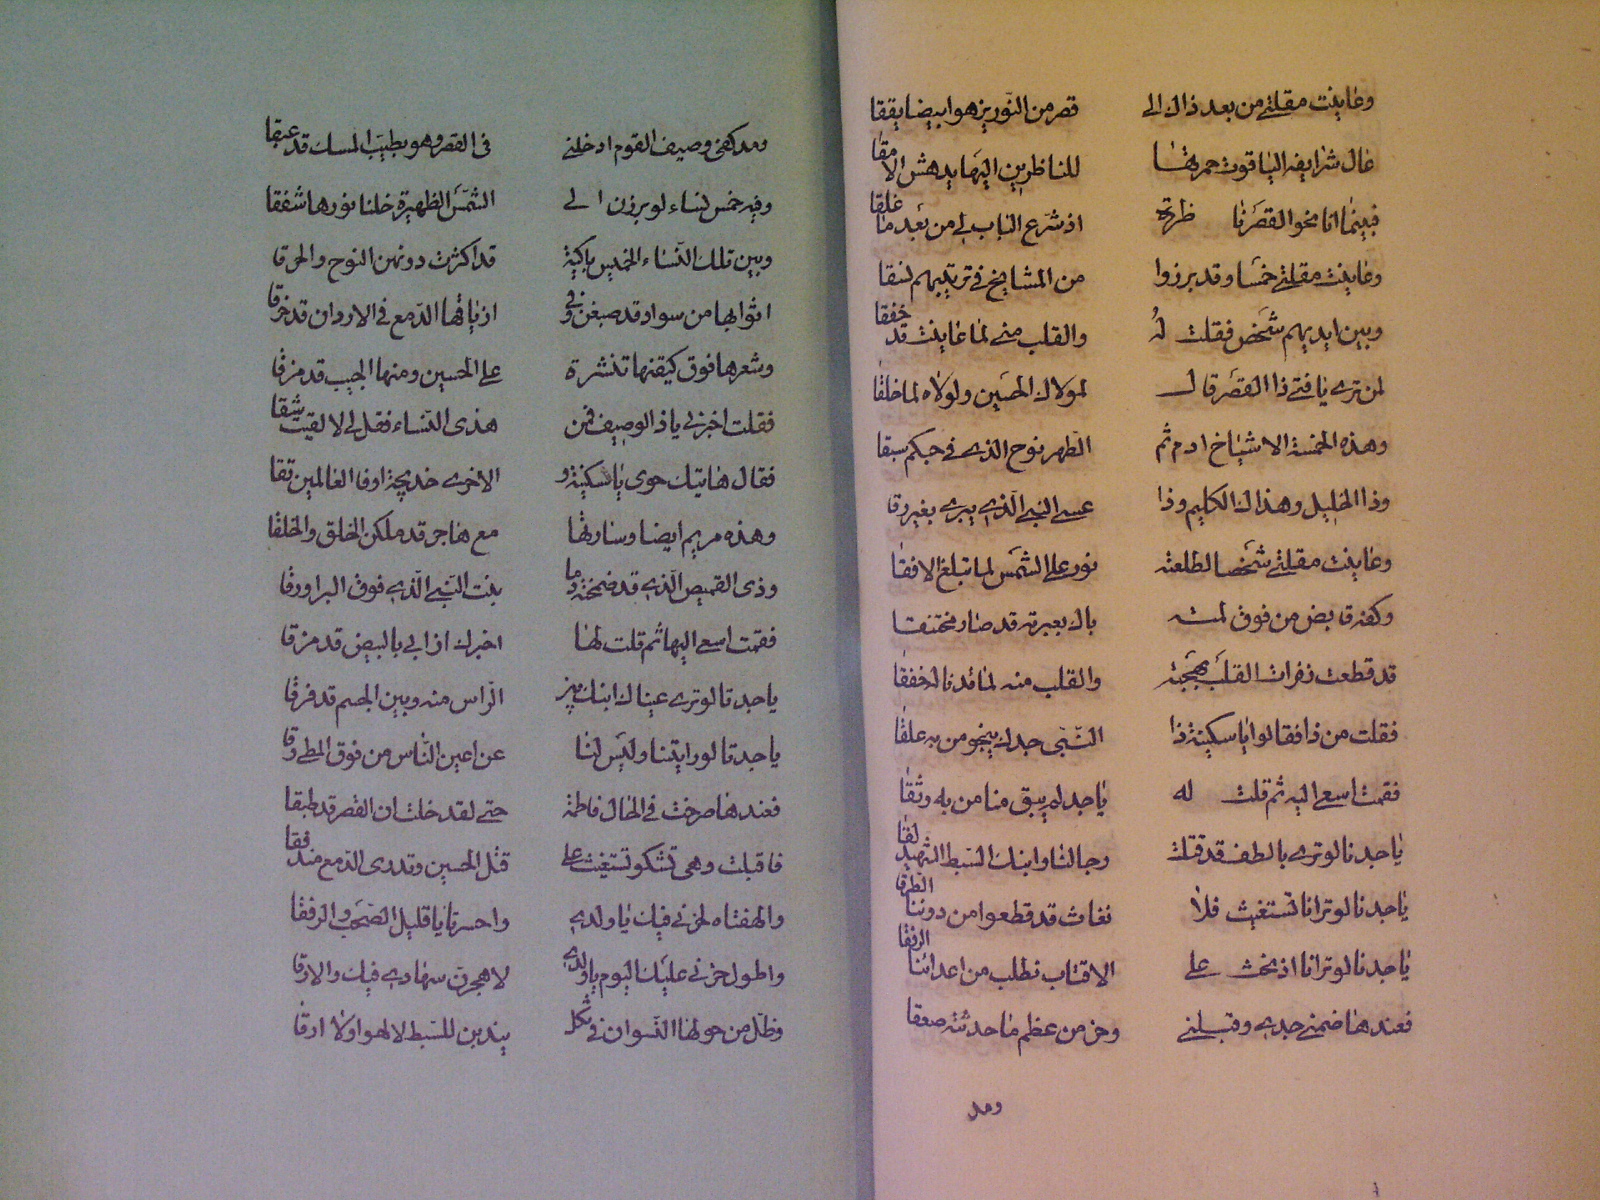 وعاينت مقلتي من بعد ذاك الى قصر من النور يزهو ابيضا يققا
عال شرايفه الياقوت حمرتها للناظرين اليها يدهش الامقا
فبينما انا نحو القصر نا ظرته اذ شرع الباب لي من بعد ما غلقا
وعاينت مقلتي خمسا وقد برزوا من المشايخ في ترتيبهم نسقا
وبين ايديهم شخص فقلت له والقلب مني لما عاينت قد خفقا
لمن ترى يا فتى ذا القصر قال لمولاك الحسين ولولاه لما خلقا
وهذه الخمسة الاشياخ ادم ثم الطهر نوح الذي في حبكم سبقا
وذا الخليل وهذاك الكليم وذا عسى النبي الذي يبرى بغير رقا
وعاينت مقلتي شخصا لطلعته نور على الشمس لما تبلغ الافقا
وكفه قابض من فوق لمته باك بعبرته قد صار مختنقا
قد قطعت زفرات القلب مهجته والقلب منه لما قد ناله خفقا
فقلت من ذا فقالوا يا سكينة ذا النبي جدك ينجو من به علقا
فقمت اسعى اليه ثم قلت له يا جد لم يبق منا من به وثقا
يا جدنا لو ترى بالطف قد قتلت رجالنا وابنك السبط الشهيد لقا
يا جدنا لو ترانا نستغيث فلا نغاث قد قطعوا من دوننا الطرقا
يا جدنا لو ترانا اذ نحث على الاقتاب نطلب من اعدائنا الرفقا
فعندها ضمني جدي وقبلني وخر من عظم ما حدثته صعقا
ومد
ومد كفي وصيف القوم ادخلني في القصر وهو بطيب المسك قد عبقا
وفيه خمس نساء لو برزن الى الشمس الظهيرة خلنا نورها شفقا
وبين تلك النساء الخمس باكية قد اكثرت دونهن النوح والحرقا
اثوابها من سواد قد صبغن وفي اذيالها الدمع في الاردان قد خرقا
وشعرها فوق كيفنها تنشرة على الحسين ومنها الجيب قد مزقا
فقلت اخبرني يا ذا الوصيف فمن هذى النساء فقل لي لا لقيت شقا
فقال هاتيك حوى يا سكينة و الاخرى خديجة اوفا العالمين تقا
وهذه مريم ايضا وسارتها مع هاجر قد ملكن الخلق والخلقا
وذى القميص الذي قد ضمخته دما بنت النبي الذي فوق البراق رقا
فقمت اسعى اليها ثم قلت لها اخبرك اذ ابي بالبيض قد مزقا
يا جدتا لو ترى عيناك ابنك بين الراس منه وبين الجسم قد فرقا
يا جدتا لو رايتنا وليس لنا عن اعين الناس من فوق المطي وقا
فعندها صرخت في الحال فاطمة حتى لقد خلت ان القصر قد طبقا
فاقبلت وهي تشكو تستغيث على قتل الحسين وتدرى الدمع مندفقا
والهفتاه لحزني فيك يا ولدي واحسرتا يا قليل الصحب والرفقا
واطول حزني عليك اليوم يا ولدي لاهجرن سهادي فيك والارقا
وظل من حولها النسوان في ثكل يندبن للسبط لا لهوا ولا ارقا